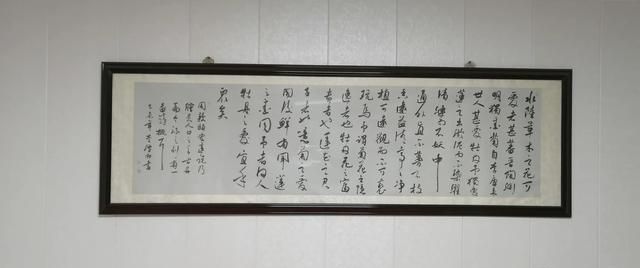 水陸草木之花可
愛者甚蕃晋陶渊
明獨愛菊自李唐来
世人甚愛牡丹予獨愛
蓮之出淤泥而不染濯
清漣而不妖中
通外直不蔓不枝
香遠益清亭亭净
植可遠觀而不可褻
玩焉予謂菊花之隱
逸者也牡丹花之富
貴者也蓮花之君
子者也噫菊之愛
陶後鮮有聞蓮
之愛同予者何人
牡丹之愛宜乎
衆矣
周敦頤愛蓮說乃